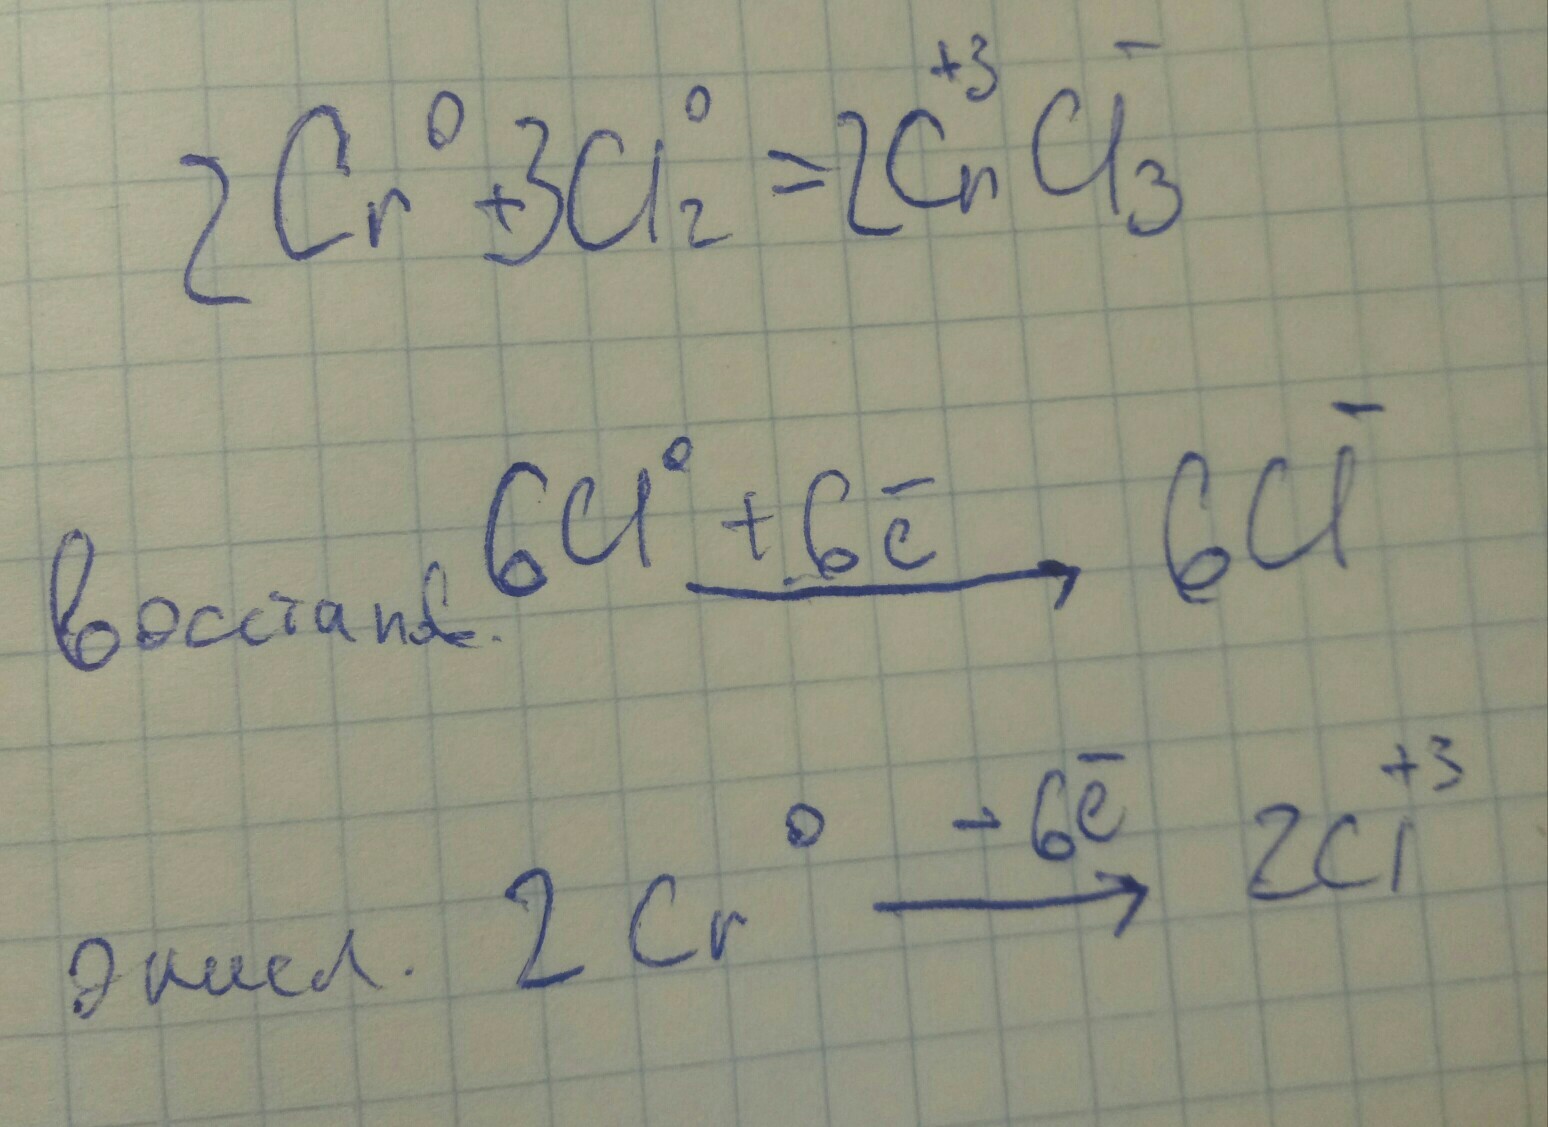 2Cr⁰ + 3Cl₂⁰ = 2Cr⁺³Cl₃⁻
восстанв. 6Cl⁰ + 6e̅ → 6Cl⁻
окисл. 2Cr⁰ - 6e̅ → 2Cl⁺³